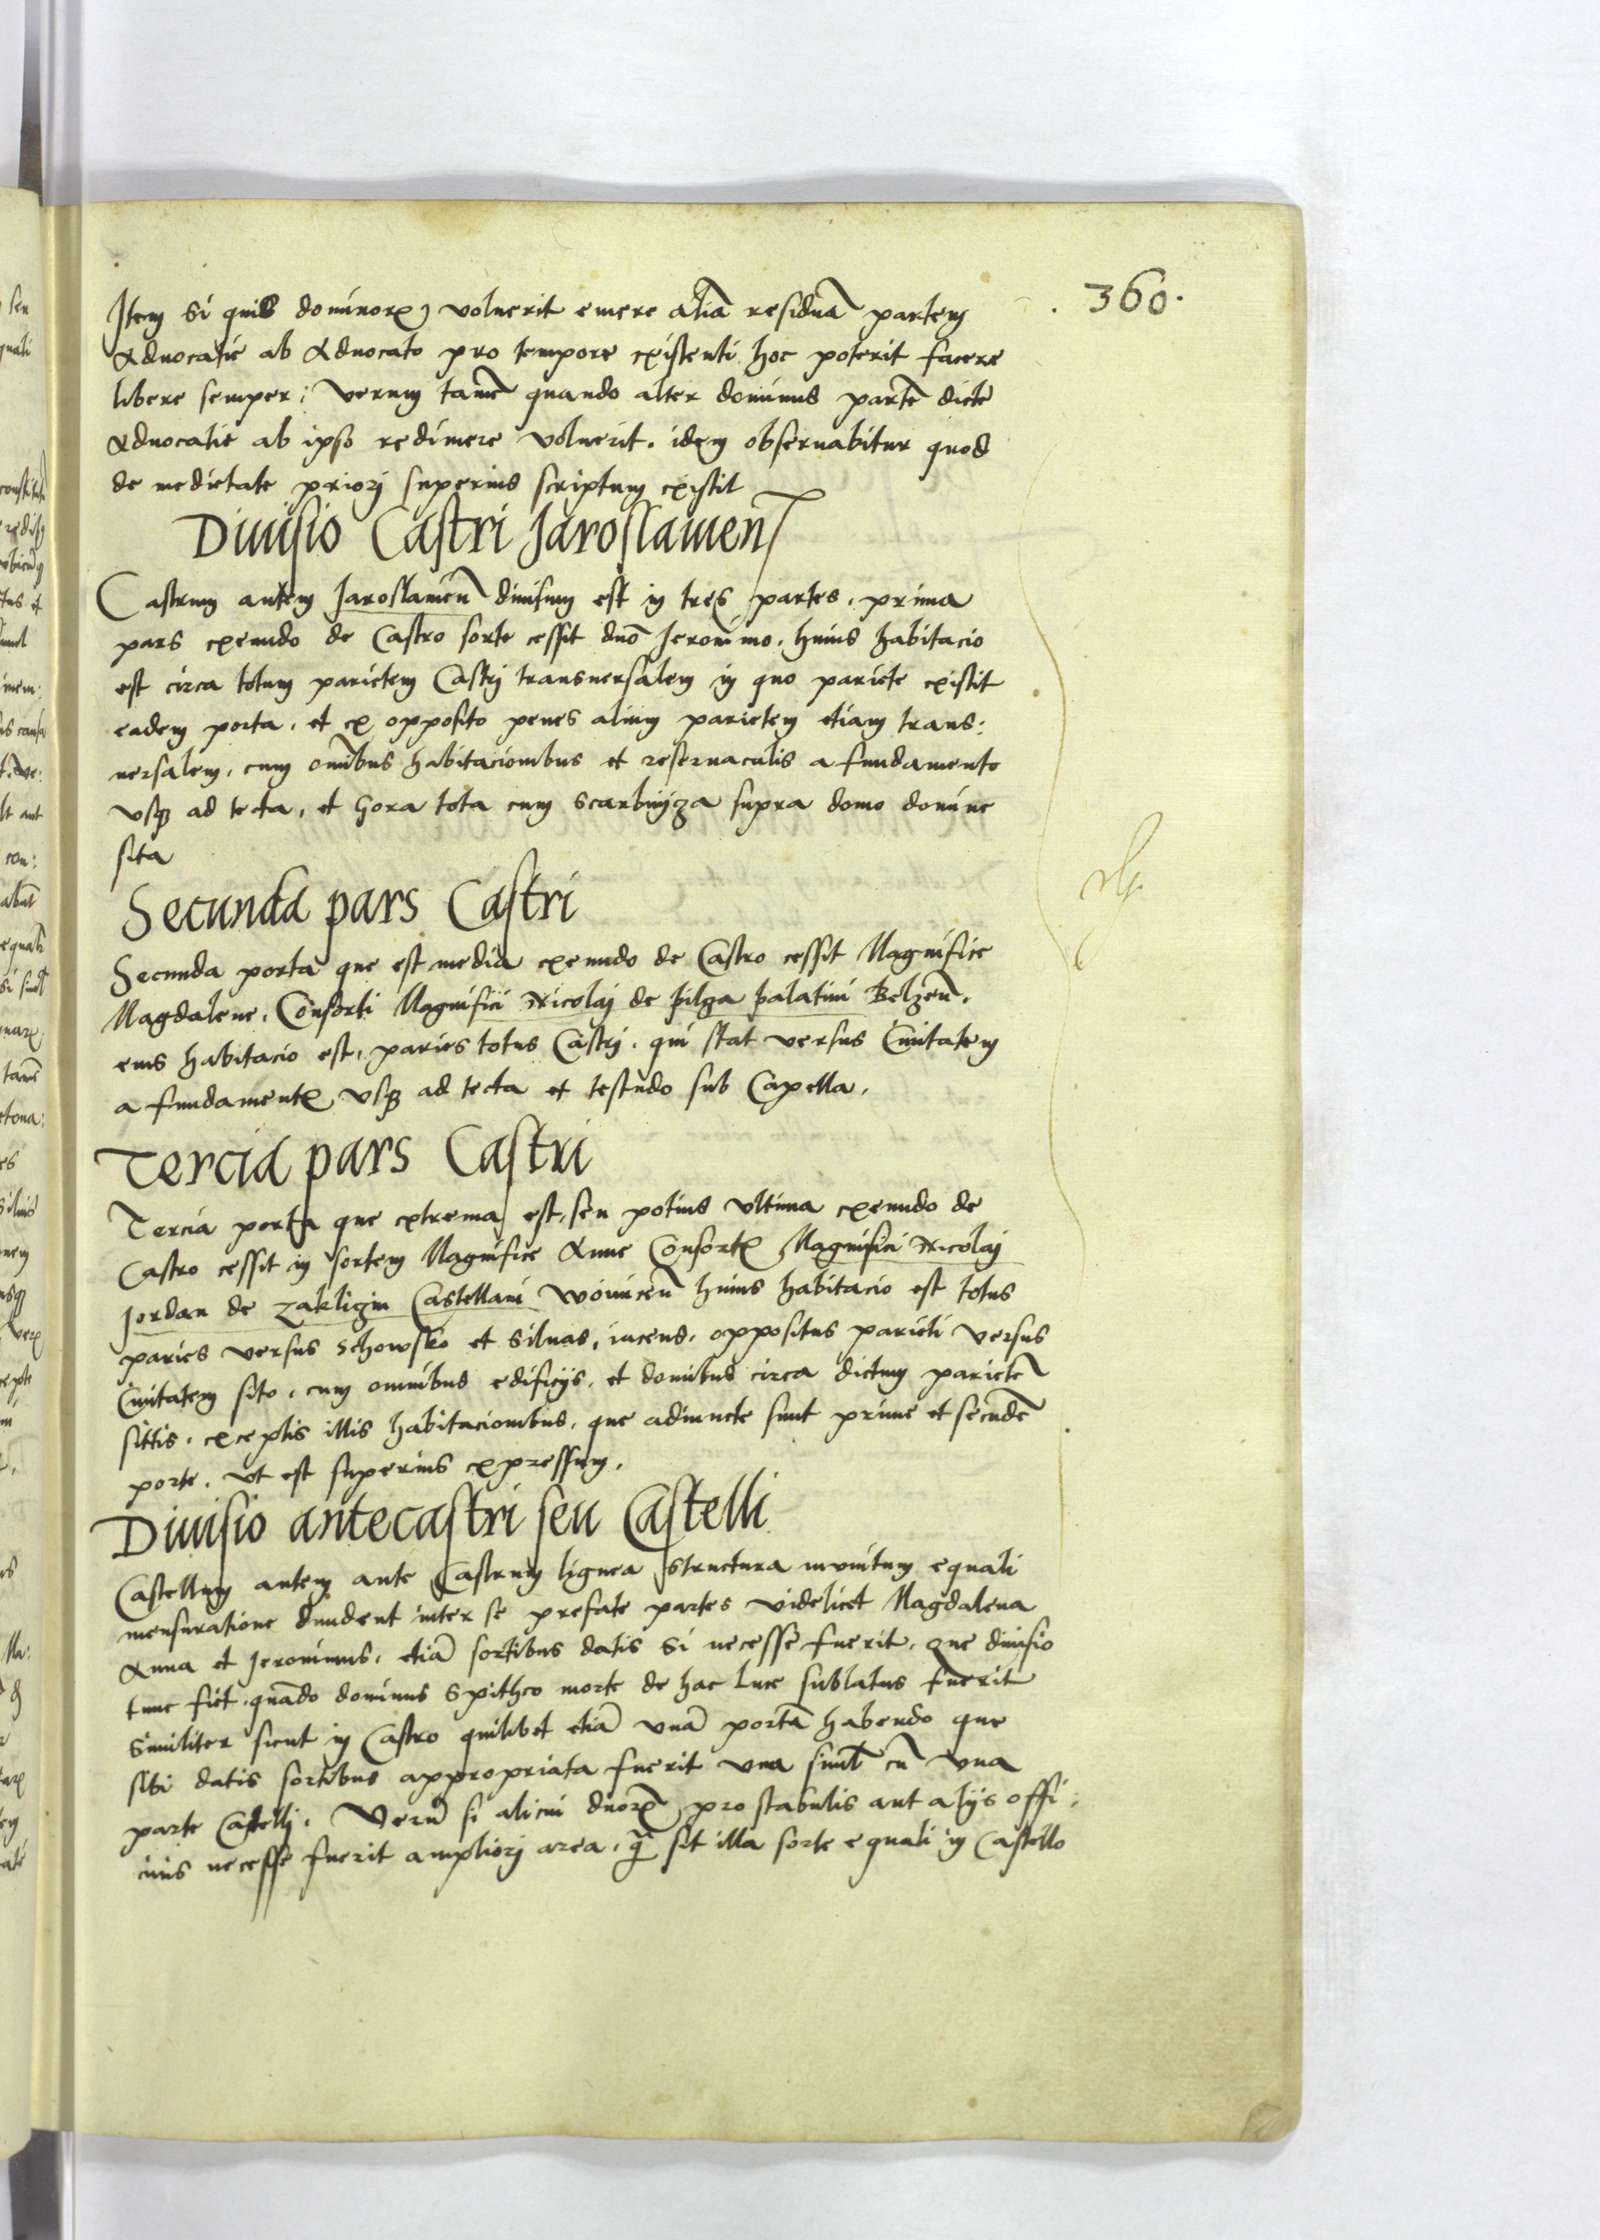 . 360.
Item si quis dominorꝝ voluerit emere aliā residuā partem
Aduocatie ab Aduocato pro tempore existenti hoc poterit facere
libere semper: verum tamē quando alter dominus partē dicte
Aduocatie ab ipso redimere voluerit. idem obseruabitur quod
de medietate priorj superius scriptum existit
Diuisio Castri Jaroslauien
Castrum autem Jaroslauień diuisum est in tres partes. prima
pars exeundo de Castro sorte cessit dno Jeronimo. huius habitacio
est circa totum parietem Castrj transuersalem in quo pariete existit
eadem porta. et ex opposito penes alium parietem etiam trans:
uersalem. cum omībus habitacionibus et reseruaculis a fundamento
vsqꝫ ad tecta. et Gora tota cum scarbnyza supra domo domine
sita
Secunda pars Castri
Secunda porta que est media exeundo de Castro cessit Magnifice
Magdalene. Consorti Magnifici Nicolaj de pilza palatini Belzeń.
eius habitacio est. paries totus Castrj. qui stat versus Ciuitatem
a fundamentꝭ vsqꝫ ad tecta et testudo sub Capella.
Tercia pars Castri
Tercia porta que extrema est. seu potius vltima exeundo de
Castro cessit in sortem Magnifice Anne Consortꝭ Magnifici Nicolaj
Jordan de zakligin Castellani Woinicen huius habitacio est totus
paries versus Schowsko et siluas, iacens. oppositus parieti versus
Ciuitatem sito. cum omnibus edificijs. et domibus circa dictum parietē
sittis. exceptis illis habitacionibus. que adiuncte sunt prime et secunde
porte. vt est superius expressum.
Diuisio antecastri seu Castelli
Castellum autem ante Castrum lignea structura munitum equali
mensuratione diuident inter se prefate partes videlicet Magdalena
Anna et Jeronimus. etiā sortibus datis si necesse fuerit. que diuisio
tunc fiet. quādo dominus Spithco morte de hac luce sublatus fuerit
similiter sicut in Castro quilibet etiā vnā portā habendo que
sibi datis sortibus appropriata fuerit vna simul cū vna
parte Castelli. Verū si alicui dnorꝝ pro stabulis aut alijs offi:
cinis necesse fuerit ampliorj area. q̄ sit illa sorte equali in Castello